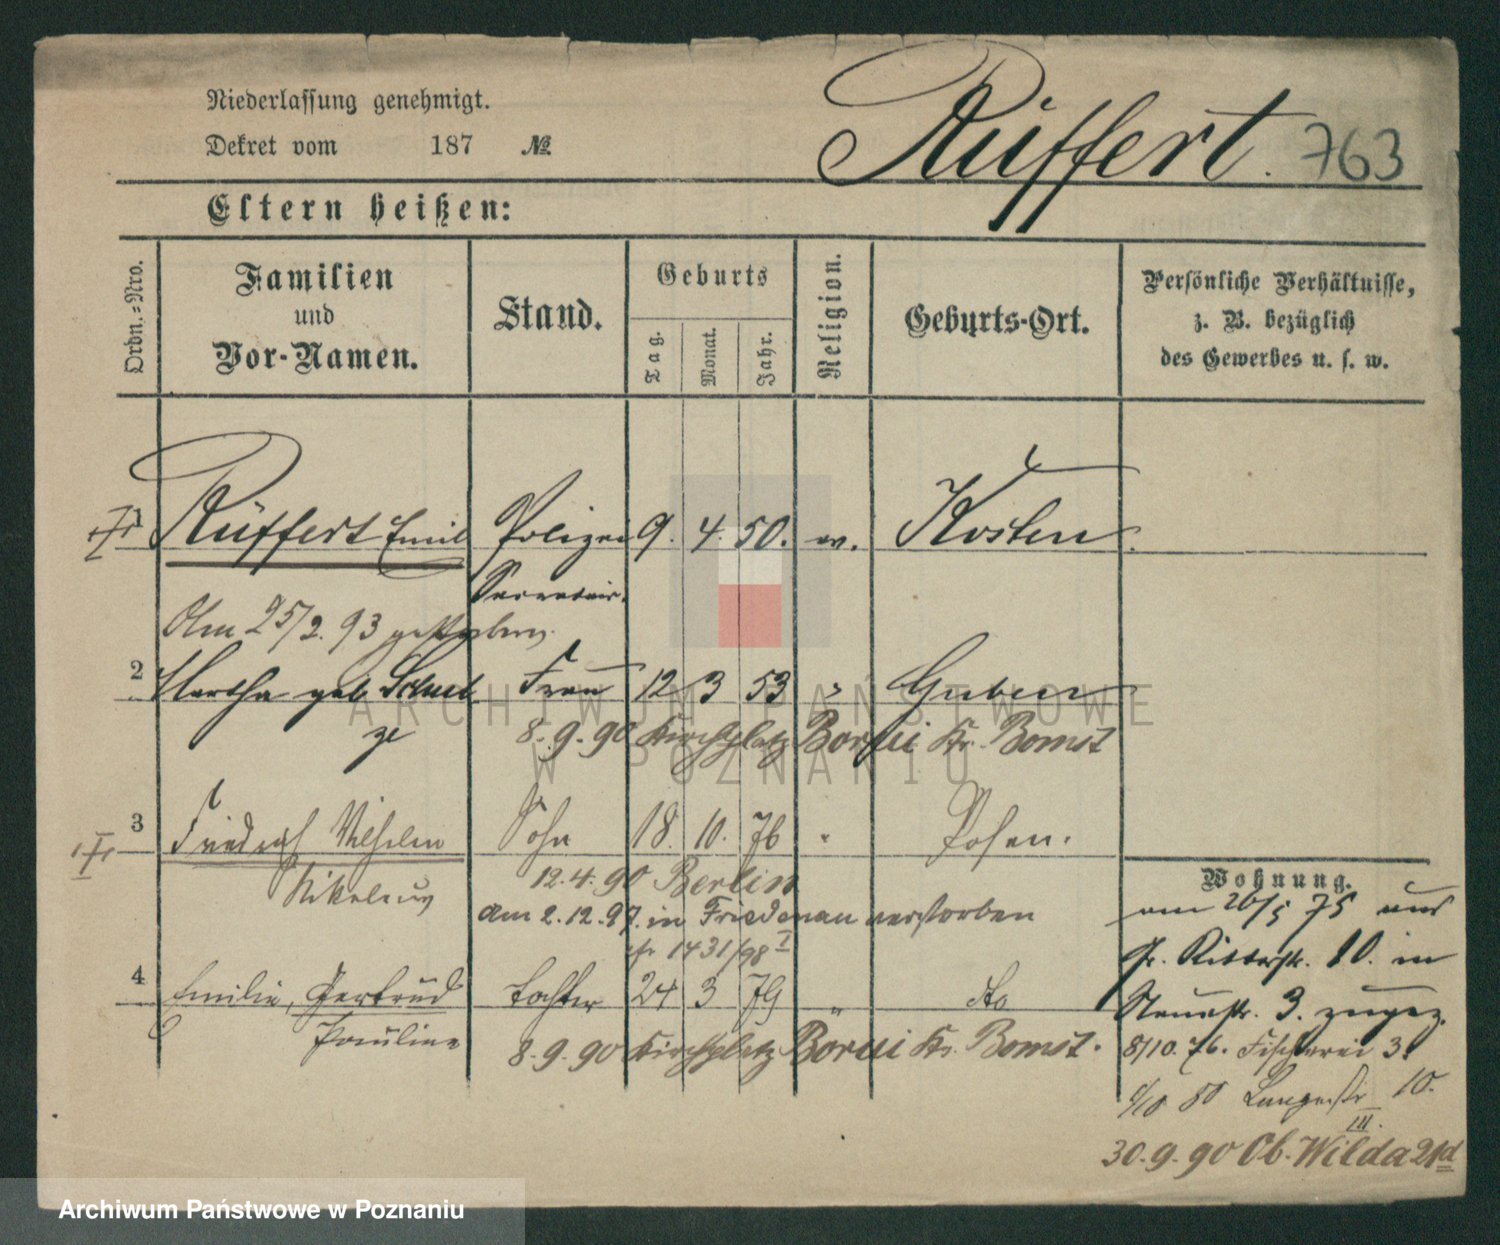 Niederlassung genehmigt.
Dekret vom 187 №
Rüffert. 763
Eltern heißen:
Ordn.-Nro.
Familien
und
Vor-Namen.
Stand.
Geburts
Tag.
Monat.
Jahr.
Religion.
Geburts-Ort.
Persönliche Verhältnisse,
z. B. bezüglich
des Gewerbes u. s. w.
1 Rüffert Emil Polizei 9. 4. 50. ev. Kosten
Secretair.
Am 25/2. 93 gestorben.
2 Martha geb. Schul Frau 12 3 53 " Guben
ze 8.9.90 Kirchplatz Borui Kr. Bomst
3 Friedrich Wilhelm Sohn 18. 10. 76 " Posen.
Nikolaus 12.4.90 Berlin
am 2.12.97. in Friedenau verstorben
1431/98 I
4 Emilie, Gertrud Tochter 24 3 79 " do
Pauline 8.9.90 Kirchplatz Borui Kr. Bomst.
Wohnung.
am 26/5 75 aus
Gr. Ritterstr. 10. in
Neuestr. 3. zugez.
8/10. 76. Fischerei 3.
80 Langestr 10.
III.
30.9.90 Ob. Wilda 21d
ARCHIWUM PAŃSTWOWE
W POZNANIU
Archiwum Państwowe w Poznaniu